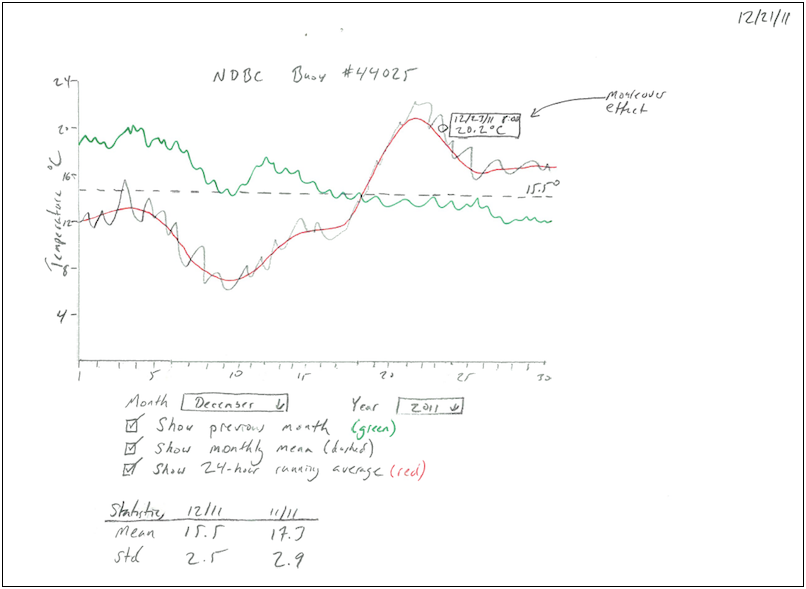 12/21/11
NDBC Buoy #44025
24
20
16
12
8
4
Temperature °C
12/23/11 8:00
20.2°C
mouseover
effect
15.5°
1 5 10 15 20 25 30
Month December Year 2011
Show previous month (green)
Show monthly mean (dashed)
Show 24-hour running average (red)
Statistics 12/11 11/11
Mean 15.5 17.3
Std 2.5 2.9